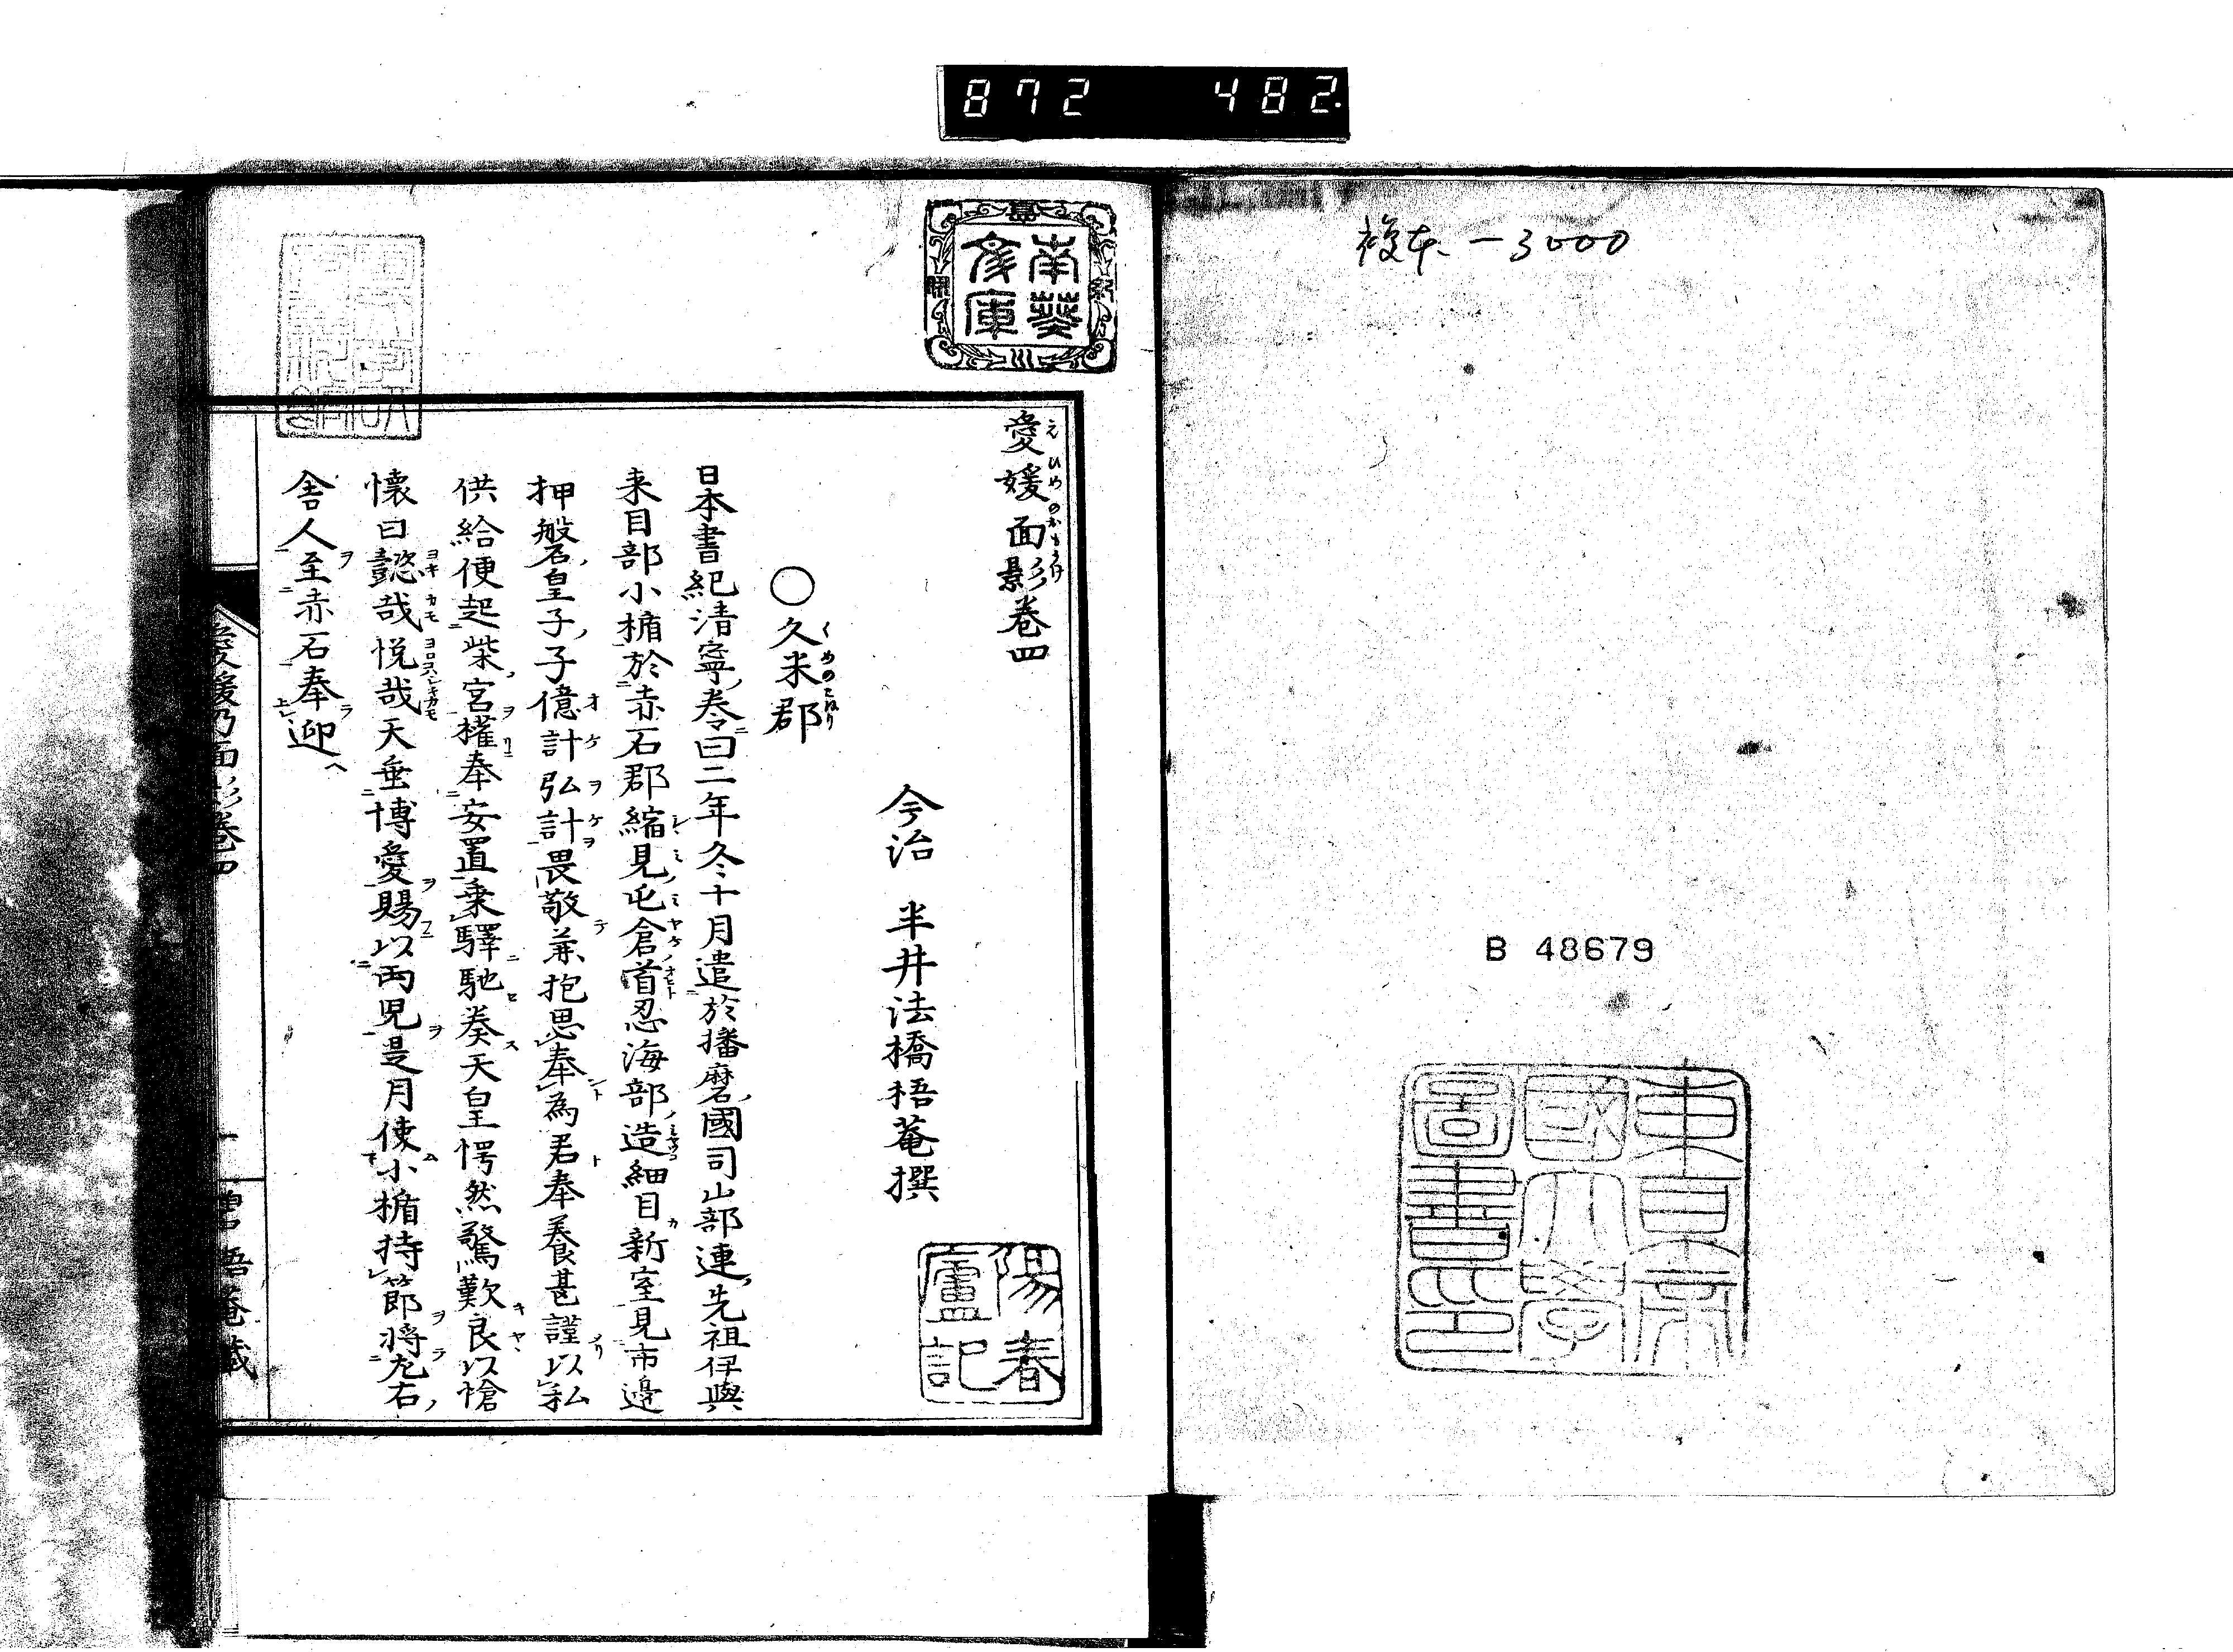 872 482
複本 -3000
B 48679
東京帝
國大學
圖書印
南葵
文庫
愛媛面影巻四
えひめのおもうけ
今治 半井法橋梧菴撰
陽春
廬記
〇久米郡
くめのこほり
日本書紀清寧巻曰二年冬十月遣於播磨國司山部連先祖伊與
来目部小楯於赤石郡縮見屯倉首忍海部造細目新室見市邊
押磐皇子子億計弘計畏敬兼抱思奉為君奉養甚謹以私
供給便起柴宮權奉安置乗驛馳奏天皇愕然驚歎良以愴
懐曰懿哉悦哉天垂博愛賜以兩児是月使小楯持節将左右
舎人至赤石奉迎
愛媛乃面影巻四
一
梧菴蔵